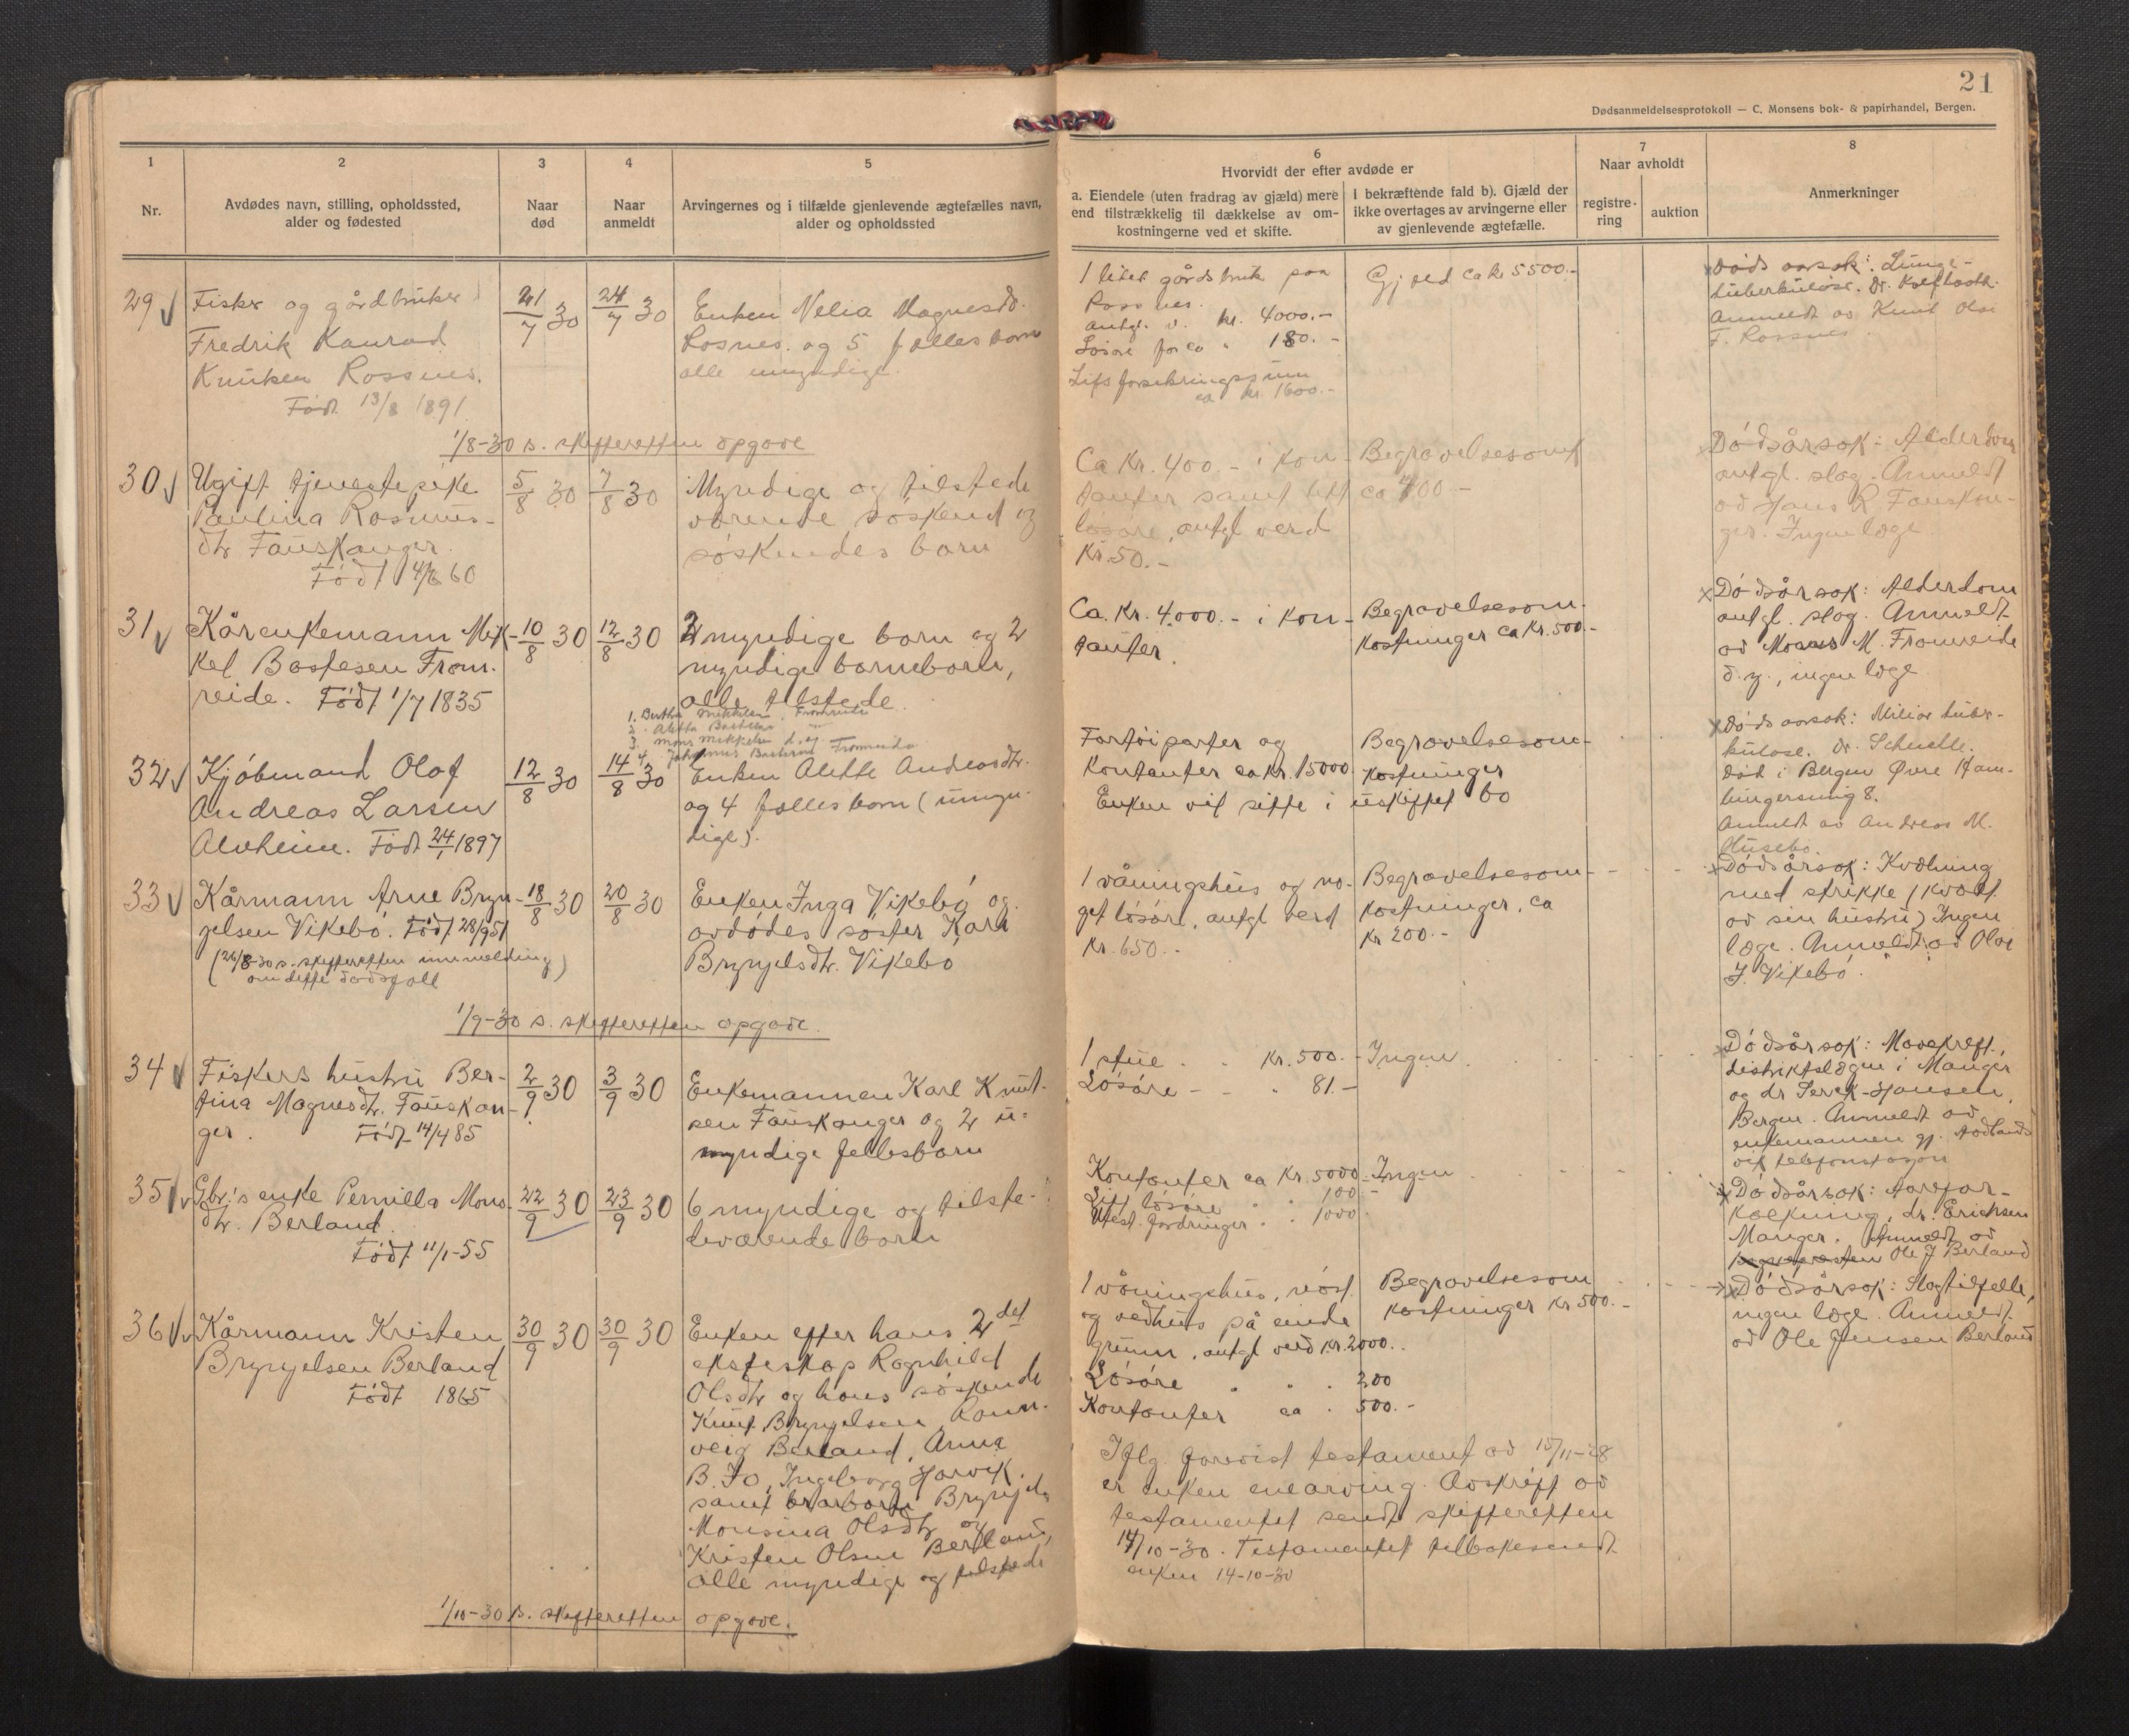 21
Dødsanmeldelsesprotokoll — C. Monsens bok- & papirhandel, Bergen.
1
Nr.
2
Avdødes navn, stilling, opholdssted,
alder og fødested
3
Naar
død
4
Naar
anmeldt
5
Arvingernes og i tilfælde gjenlevende ægtefælles navn,
alder og opholdssted
6
Hvorvidt der efter avdøde er
a. Eiendele (uten fradrag av gjæld) mere
end tilstrækkelig til dækkelse av om-
kostningerne ved et skifte.
I bekræftende fald b). Gjæld der
ikke overtages av arvingerne eller
av gjenlevende ægtefælle.
7
Naar avholdt
registre-
ring
auktion
8
Anmerkninger
29
Fisker og gårdbruker
Fredrik Konrad
Knutsen Rossnes.
Født 13/8 1891
21/7 30
24/7 30
Enken Nelia Magnesdtr.
og 5 fællesborn
alle umyndige.
1 litet gårdsbruk paa
Rossnes.
antgl. v. kr. 4000.-
Løsøre for ca " 180.-
Lifsforsikringssum
ca kr 1600.-
Gjæld ca kr 5500.-
Dødsaarsak: Lunge-
tuberkulose. Dr.
Anmeldt av Knut Olsen
F. Rossnes
1/8-30 s. skifteretten opgave
30
Ugift tjenestepike
Paulina Rasmus-
dtr. Fauskanger.
Født 14/6 60
5/8 30
7/8 30
Myndige og tilstede
værende søskend og
søskendes born
Ca Kr. 400.- i kon-
tanter samt litt
løsøre, antgl verd
Kr. 50.-
Begravelsesomk
ca 400-
Dødsårsak: Alderdom
antgl. slag. Anmeldt
av Hans R. Fauskan-
ger. Ingen læge
31
Kårenkemann Mik-
kel Bastesen From-
reide. Født 1/7 1835
10/8 30
12/8 30
2 myndige born og 2
myndige borneborn,
alle tilstede.
1. Bertha Mikkelsen Fromreide
2. Aletta Bastesen
3. Mons Mikkelsen d.y.
4. Johannes Bastesen Fromreide
Ca. Kr. 4000.- i kon-
tanter.
Begravelsesom-
kostninger ca Kr. 500.-
Dødsårsak: Alderdom
antgl. slag. Anmeldt
av Mons M. Fromreide
d.y., ingen læge
32
Kjøbmand Olaf
Andreas Larsen
Alvheim. Født 24/1 1897
12/8 30
14/8 30
Enken Alette Andreasdtr.
og 4 fællesborn (umyn-
dige).
Fartøiparter og
Kontanter ca kr. 15000
Enken vil sitte i uskiftet bo
Begravelsesom-
kostninger
Dødsaarsak: Miliær tuber-
kulose. Dr.
død i Bergen Øvre Ham-
burgersmug 8.
Anmeldt av Andreas M.
Husebø.
33
Kårmann Arne Bryn-
gelsen Vikebø. Født 28/9 51
(26/8-30 s. skifteretten innmelding
om dette dødsfall)
18/8 30
20/8 30
Enken Inga Vikebø og
avdødes søster Kari
Bryngelsdtr. Vikebø
1 våningshus og no-
get løsøre, antgl verd
Kr. 650.-
Begravelsesom-
kostninger, ca
Kr 200.-
Dødsårsak: Kvælning
med strikke (kvalt
av sin hustru) Ingen
læge. Anmeldt av Olai
J. Vikebø.
1/9-30 s. skifteretten opgave.
34
Fiskers hustru Ber-
tina Magnesdtr. Fauskan-
ger. Født 14/4 85
2/9 30
3/9 30
Enkemannen Karl Knut-
sen Fauskanger og 2 u-
myndige fellesborn
1 stue " kr. 500.-
Løsøre - - " 81.-
Ingen
Dødsårsak: Mavekreft,
distriktslægen i Manger
og dr. Serck-Hansen,
Bergen. Anmeldt av
enkemannen gj. Aadlands-
vik telefonstasjon
35
Gbr.'s enke Pernilla Mons-
dtr. Berland.
Født 11/1-55
22/9 30
23/9 30
6 myndige og tilste-
deværende born
Kontanter ca Kr. 5000.-
Litt løsøre " " 100.-
Utest. fordringer " " 1000
Ingen
Dødsårsak: Aarefor-
kalkning, dr. Erichsen
Manger. Anmeldt av
Ole J Berland
36
Kårmann Kristen
Bryngelsen Berland
Født 1865
30/9 30
30/9 30
Enken efter hans 2det
ekteskap Ragnhild
Olsdtr og hans søskende
Knut Bryngelsen, Rann-
veig Berland, Anna
B. Fo, Ingeborg Horvik
samt brorborn
Monsina Olsdtr og
Kristen Olsen Berland,
alle myndige og tilstede
1 våningshus, nøst
og vedhus på eiende
grunn, antgl verd kr. 2000.-
Løsøre " " . 200
Kontanter ca . 500.-
Begravelsesom
kostninger kr 500.-
Iflg. forevist testament av 15/11-28
er enken enearving. Avskrift av
testamentet sendt skifteretten
14/10-30. Testamentet tilbakesendt
enken 14-10-30
Dødsårsak: Slagtilfelle,
ingen læge. Anmeldt
av Ole Jensen Berland
1/10-30 s. skifteretten opgave.